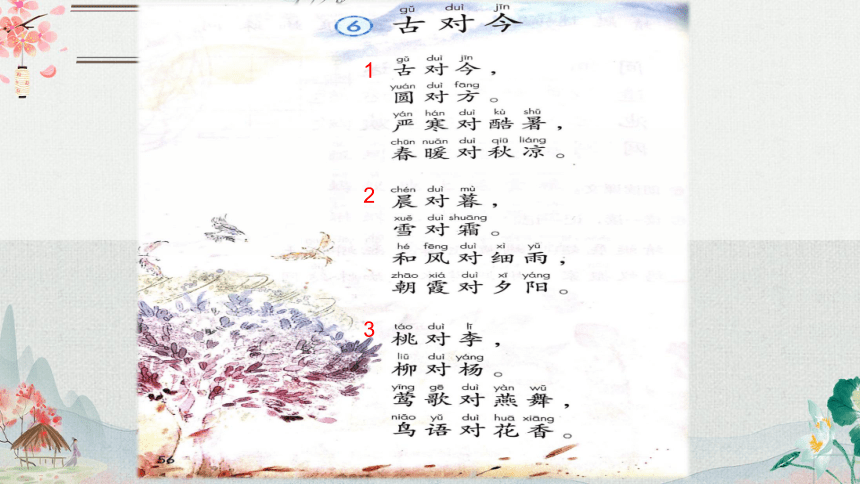 gǔ duì jīn
6 古对今
1
gǔ duì jīn
古对今，
yuán duì fāng
圆对方。
yán hán duì kù shǔ
严寒对酷暑，
chūn nuǎn duì qiū liáng
春暖对秋凉。
2
chén duì mù
晨对暮，
xuě duì shuāng
雪对霜。
hé fēng duì xì yǔ
和风对细雨，
zhāo xiá duì xī yáng
朝霞对夕阳。
3
táo duì lǐ
桃对李，
liǔ duì yáng
柳对杨。
yīng gē duì yàn wǔ
莺歌对燕舞，
niǎo yǔ duì huā xiāng
鸟语对花香。
56